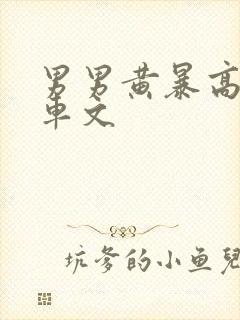 男男黄暴高
车文
坑爹的小鱼儿